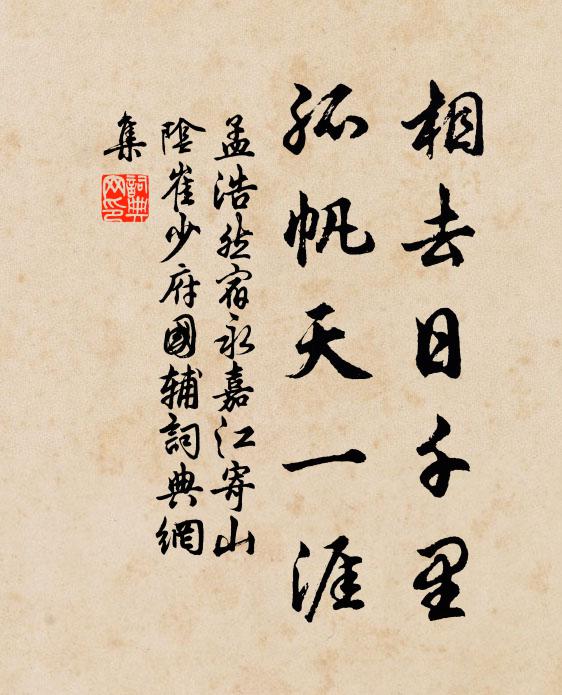 相去日千里
孤帆天一涯
孟浩然宿永嘉江寄山
陰崔少府國輔詞典網
集
詞典网印